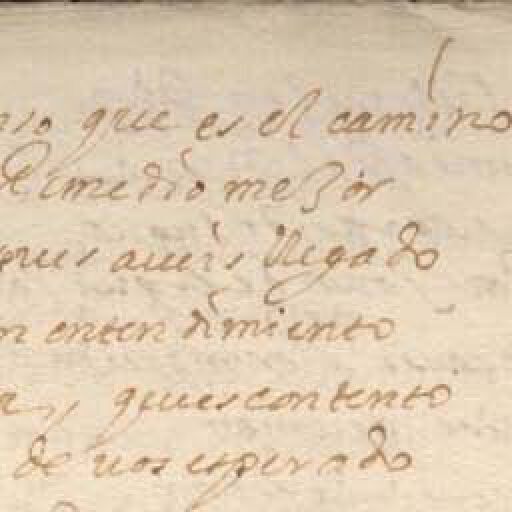 que es el camino
Remedio mejor
pues aueis llegado
entendimiento
y pues contento
de uos esperado